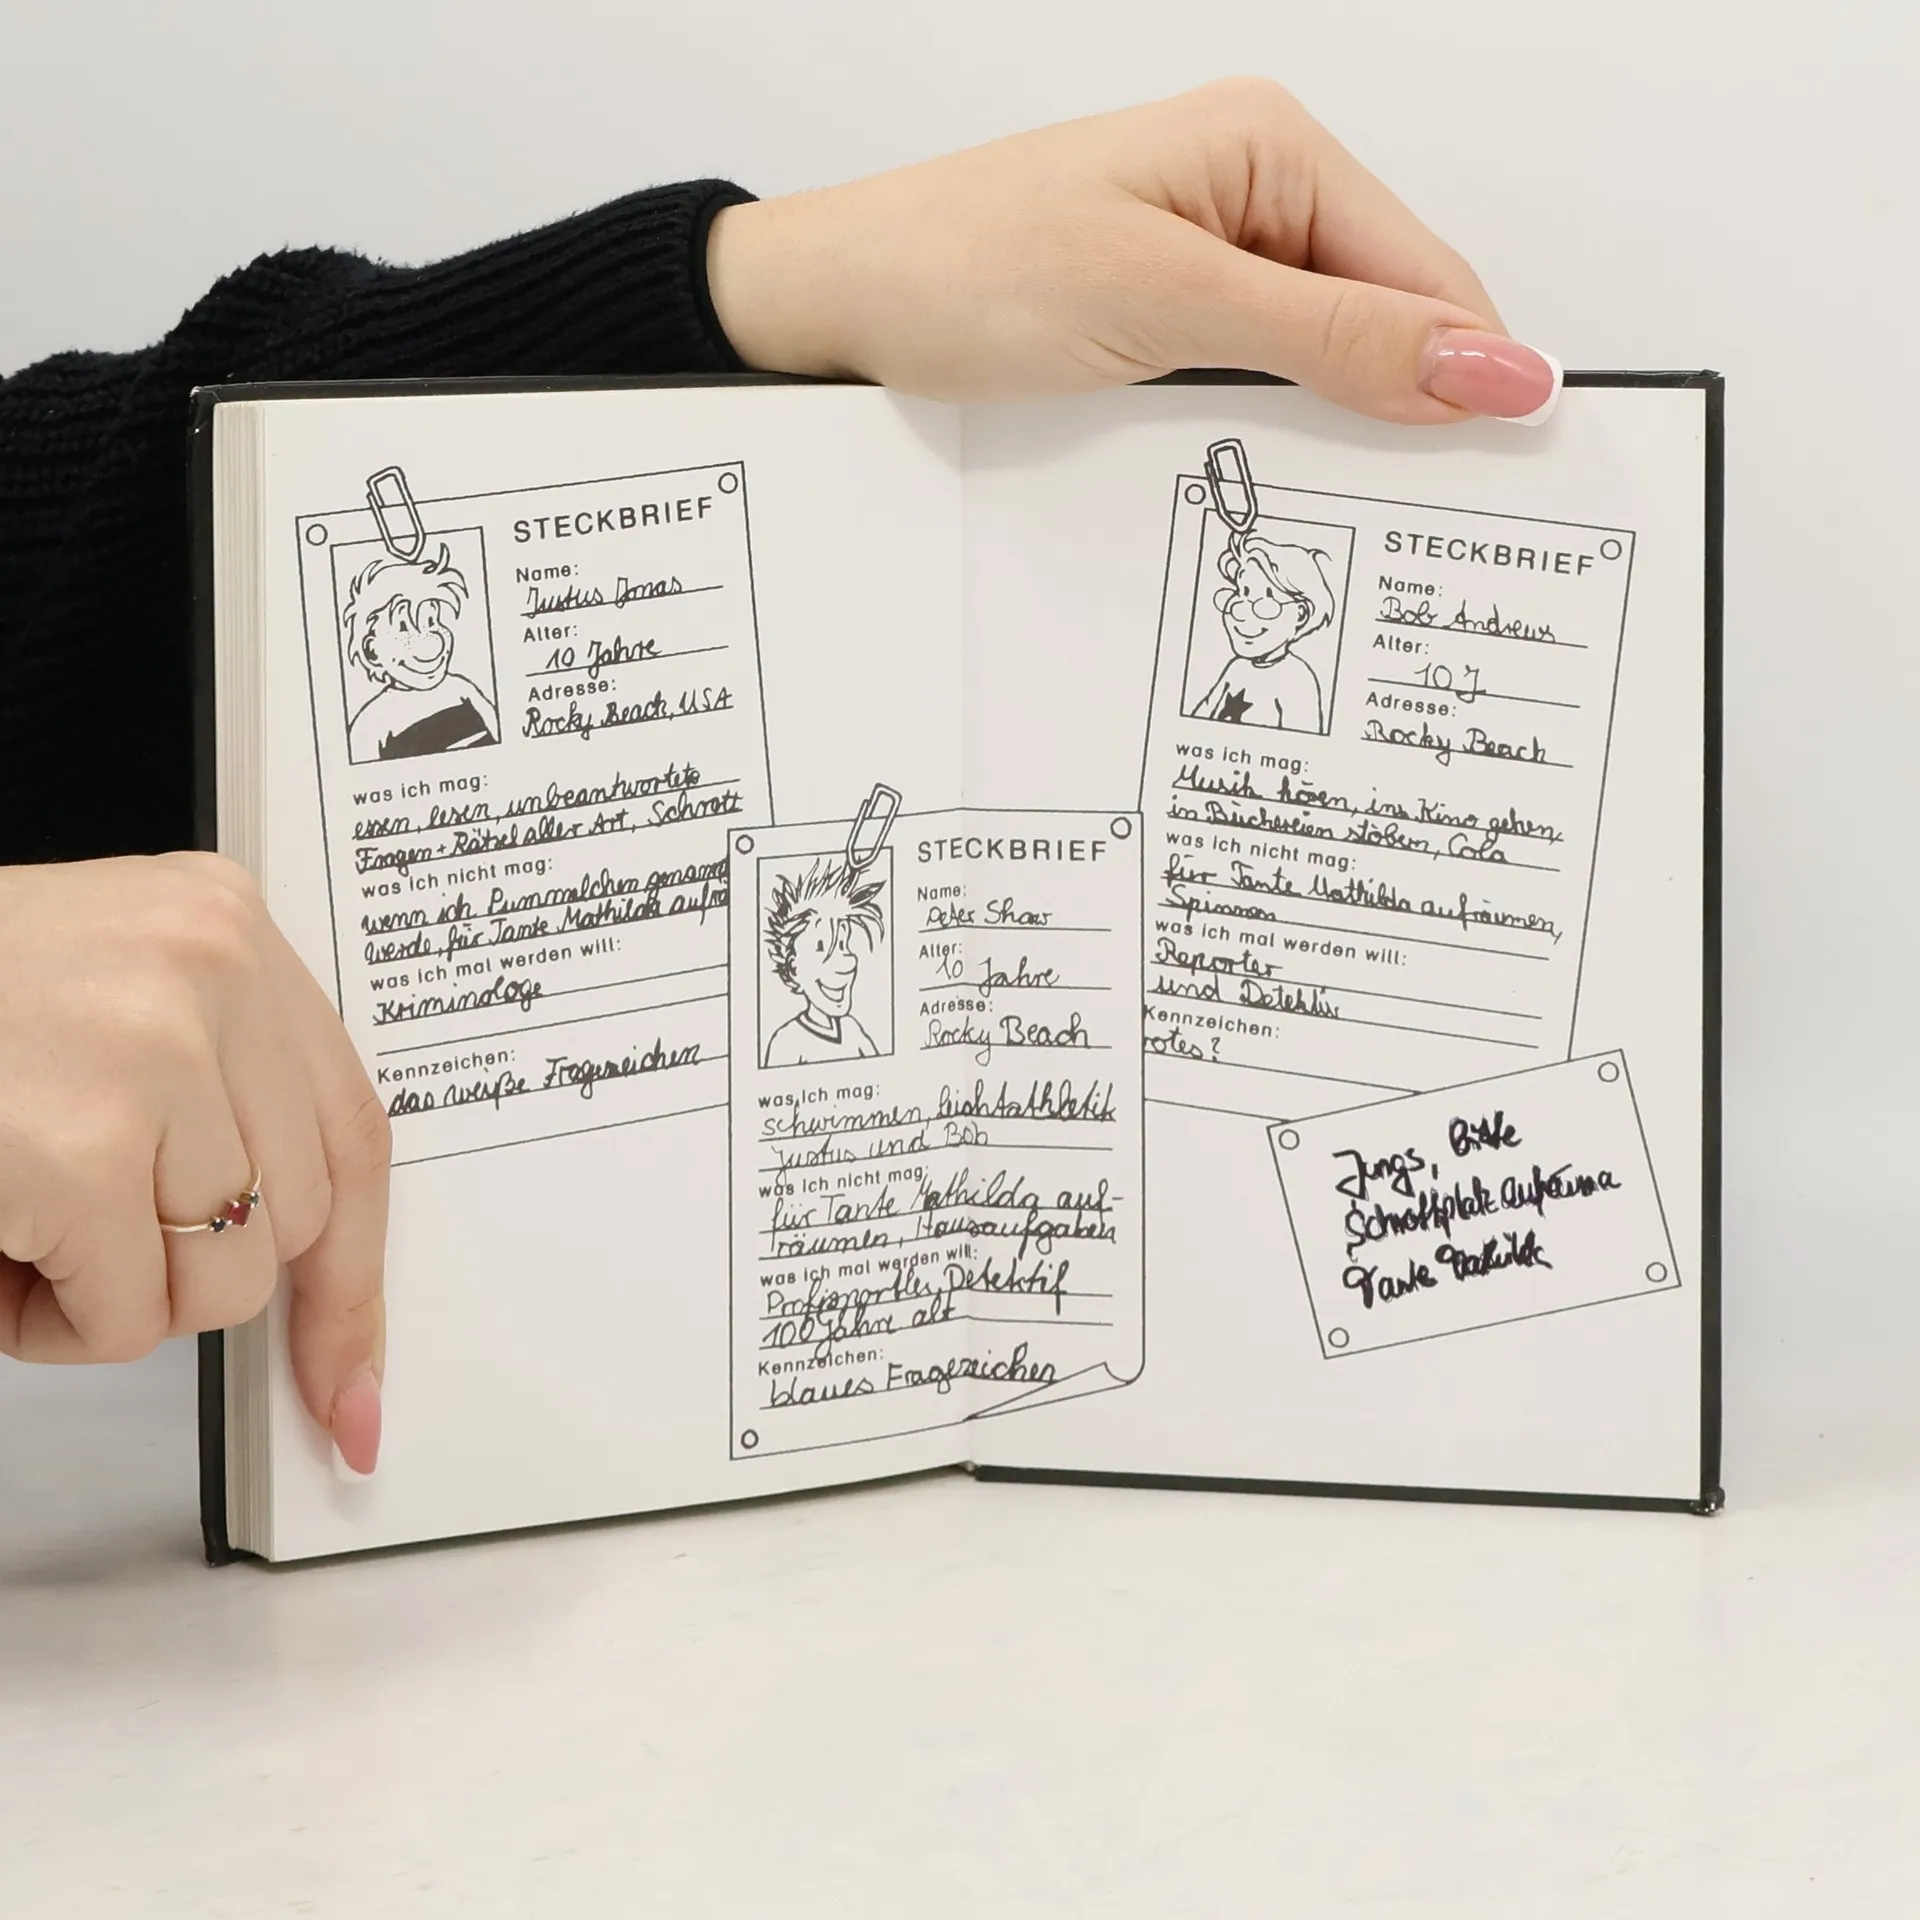 STECKBRIEF
Name:
Justus Jonas
Alter:
10 Jahre
Adresse:
Rocky Beach, USA
was ich mag:
essen, lesen, unbeantwortete
Fragen + Rätsel aller Art, Schrott
was ich nicht mag:
wenn ich Pummelchen genannt
werde, für Tante Mathilda aufrä
was ich mal werden will:
Kriminologe
Kennzeichen:
das weiße Fragezeichen
STECKBRIEF
Name:
Peter Shaw
Alter:
10 Jahre
Adresse:
Rocky Beach
was ich mag:
schwimmen, Leichtathletik
Justus und Bob
was ich nicht mag:
für Tante Mathilda auf-
räumen, Hausaufgaben
was ich mal werden will:
Profisportler, Detektif
100 Jahre alt
Kennzeichen:
blaues Fragezeichen
STECKBRIEF
Name:
Bob Andrews
Alter:
10 J
Adresse:
Rocky Beach
was ich mag:
Musik hören, ins Kino gehen,
in Büchereien stöbern, Cola
was ich nicht mag:
für Tante Mathilda aufräumen,
Spinnen
was ich mal werden will:
Reporter
und Detektiv
Kennzeichen:
rotes?
Jungs, Bitte
Schrottplatz
Tante Mathilda